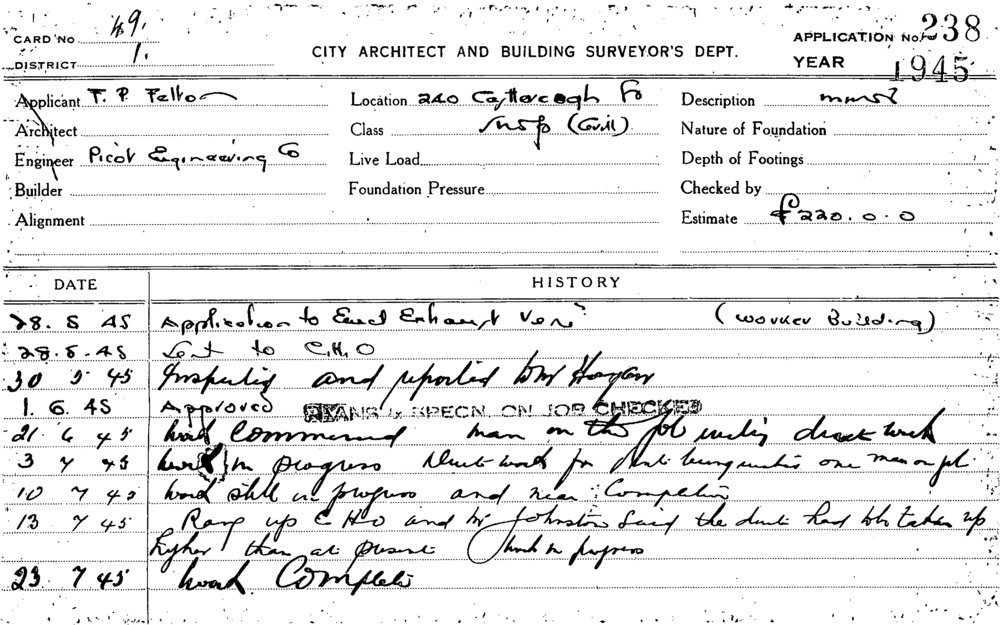 CARD No 49. CITY ARCHITECT AND BUILDING SURVEYOR'S DEPT. APPLICATION No. 238
DISTRICT 1. YEAR 1945
Applicant F. P. Felton Location 240 Description
Architect Class Shop (Grill) Nature of Foundation
Engineer Picot Engineering Co Live Load Depth of Footings
Builder Foundation Pressure Checked by
Alignment Estimate £220.0.0
DATE HISTORY
28. 5 45 Application to Erect Exhaust Vent (Worker Building)
28. 5. 45 Sent to C.H.O
30 5 45 Inspected and reported to Mr Hogan
1. 6. 45 Approved PLANS & SPECN. ON JOB CHECKED
21 6 45 Work Commenced man on the job making duct work
3 7 45 Work in progress Duct work for one man on job
10 7 45 Work still in progress and near Completion
13 7 45 Rang up C H O and Mr Johnston said the duct had to be taken up
higher than at present Work in progress
23 7 45 Work Complete